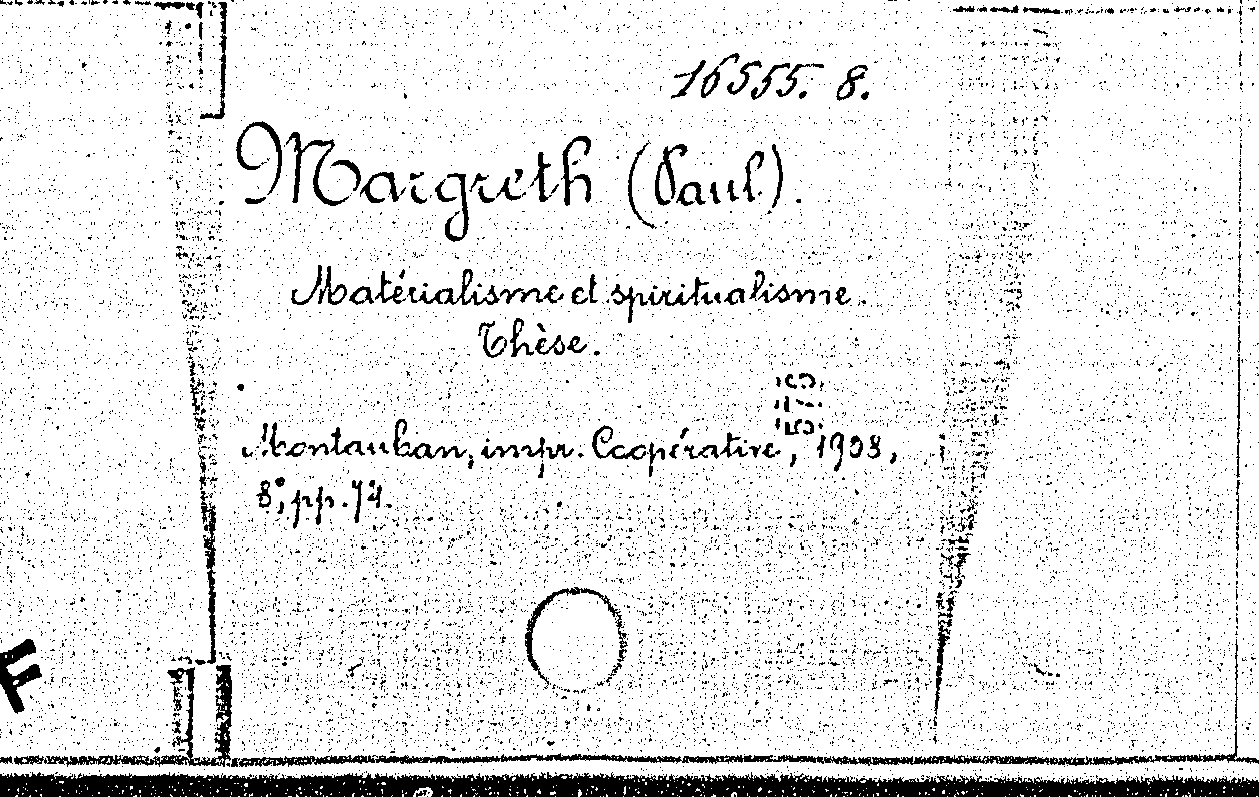 16555. 8.
Margreth (Paul).
Matérialisme et spiritualisme.
Thèse.
Montauban, impr. Coopérative, 1908,
8°, pp. 74.
F